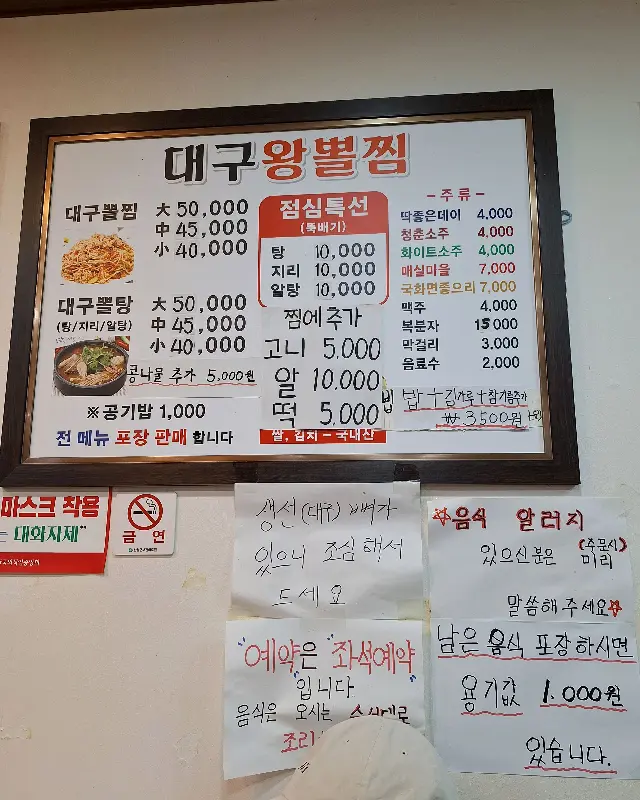 대구왕뽈찜
대구뽈찜
大 50,000
中 45,000
小 40,000
대구뽈탕
(탕/지리/알탕)
大 50,000
中 45,000
小 40,000
콩나물 추가 5,000원
※공기밥 1,000
전 메뉴 포장 판매 합니다
점심특선
(뚝배기)
탕 10,000
지리 10,000
알탕 10,000
찜에추가
고니 5,000
알 10,000
떡 5,000
쌀, 김치 - 국내산
- 주류 -
딱좋은데이 4,000
청춘소주 4,000
화이트소주 4,000
매실마을 7,000
국화면좋으리 7,000
맥주 4,000
복분자 15000
막걸리 3,000
음료수 2,000
빕 밥 + 김가루 + 참기름추가
₩ 3500원
마스크 착용
대화자제"
금연
생선(대구) 뼈가
있으니 조심해서
드세요
"예약은 "좌석예약"
입니다
음식은 오시는
조리
음식 알러지
있으신분은 (주문시) 미리
말씀해 주세요
남은 음식 포장하시면
용기값 1.000원
있습니다.